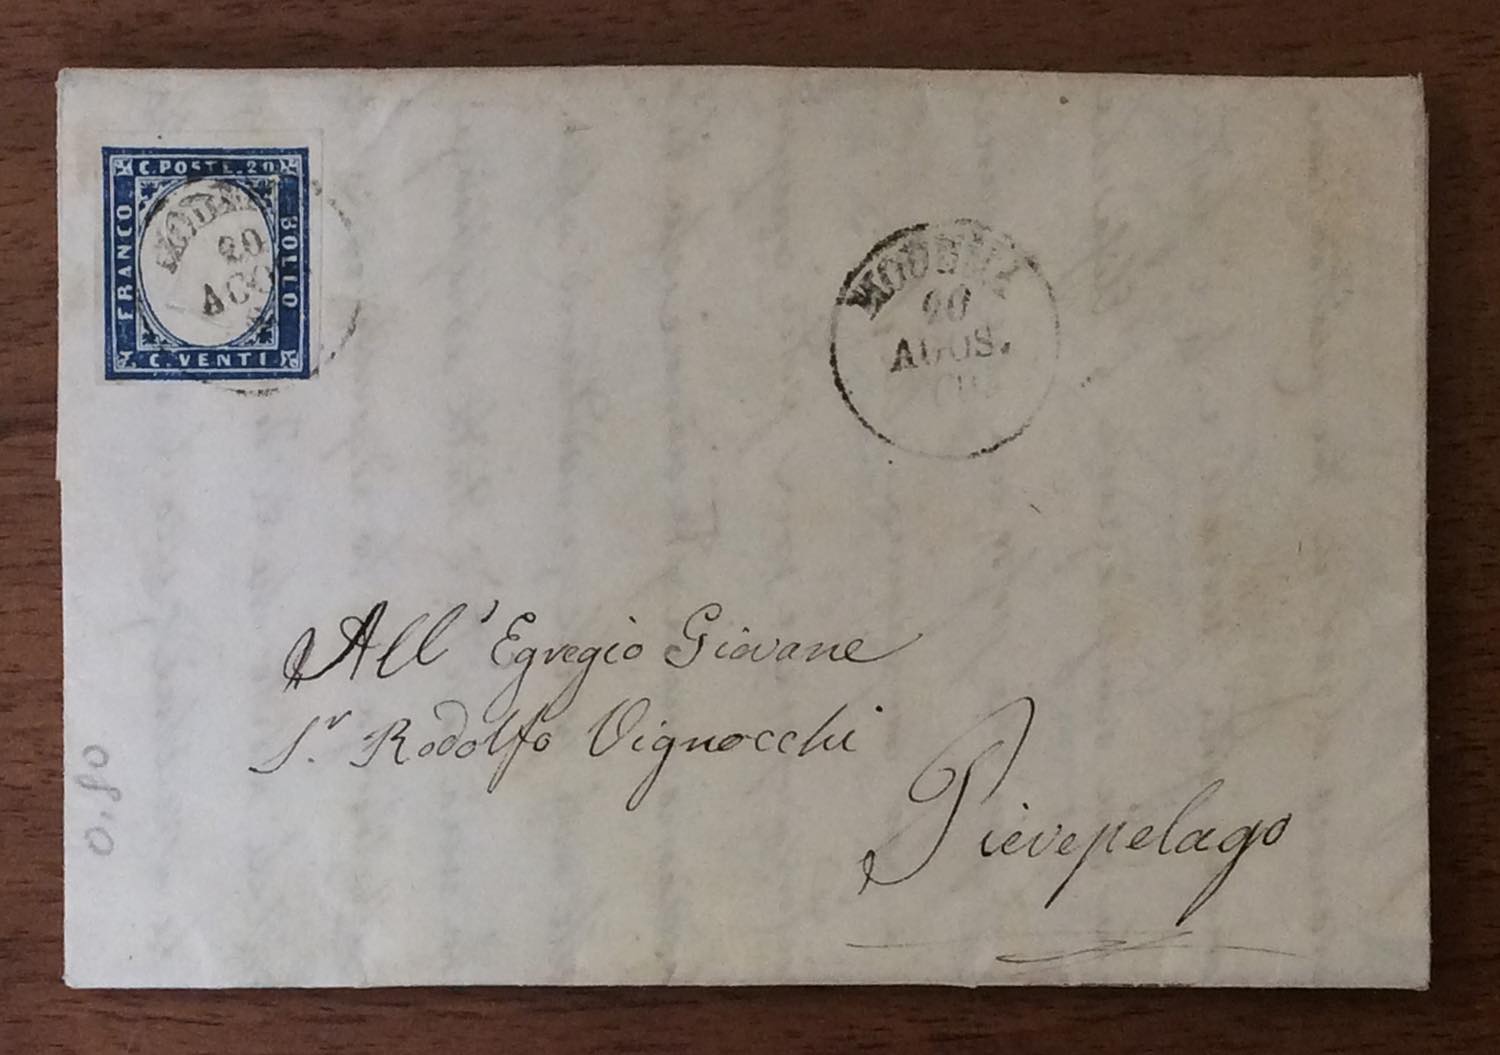 C. POSTE. 20
FRANCO
BOLLO
C. VENTI
20
AGO
MODENA
20
AGOS.
All' Egregio Giovane
Sr. Rodolfo Vignocchi
Pievepelago
0.80